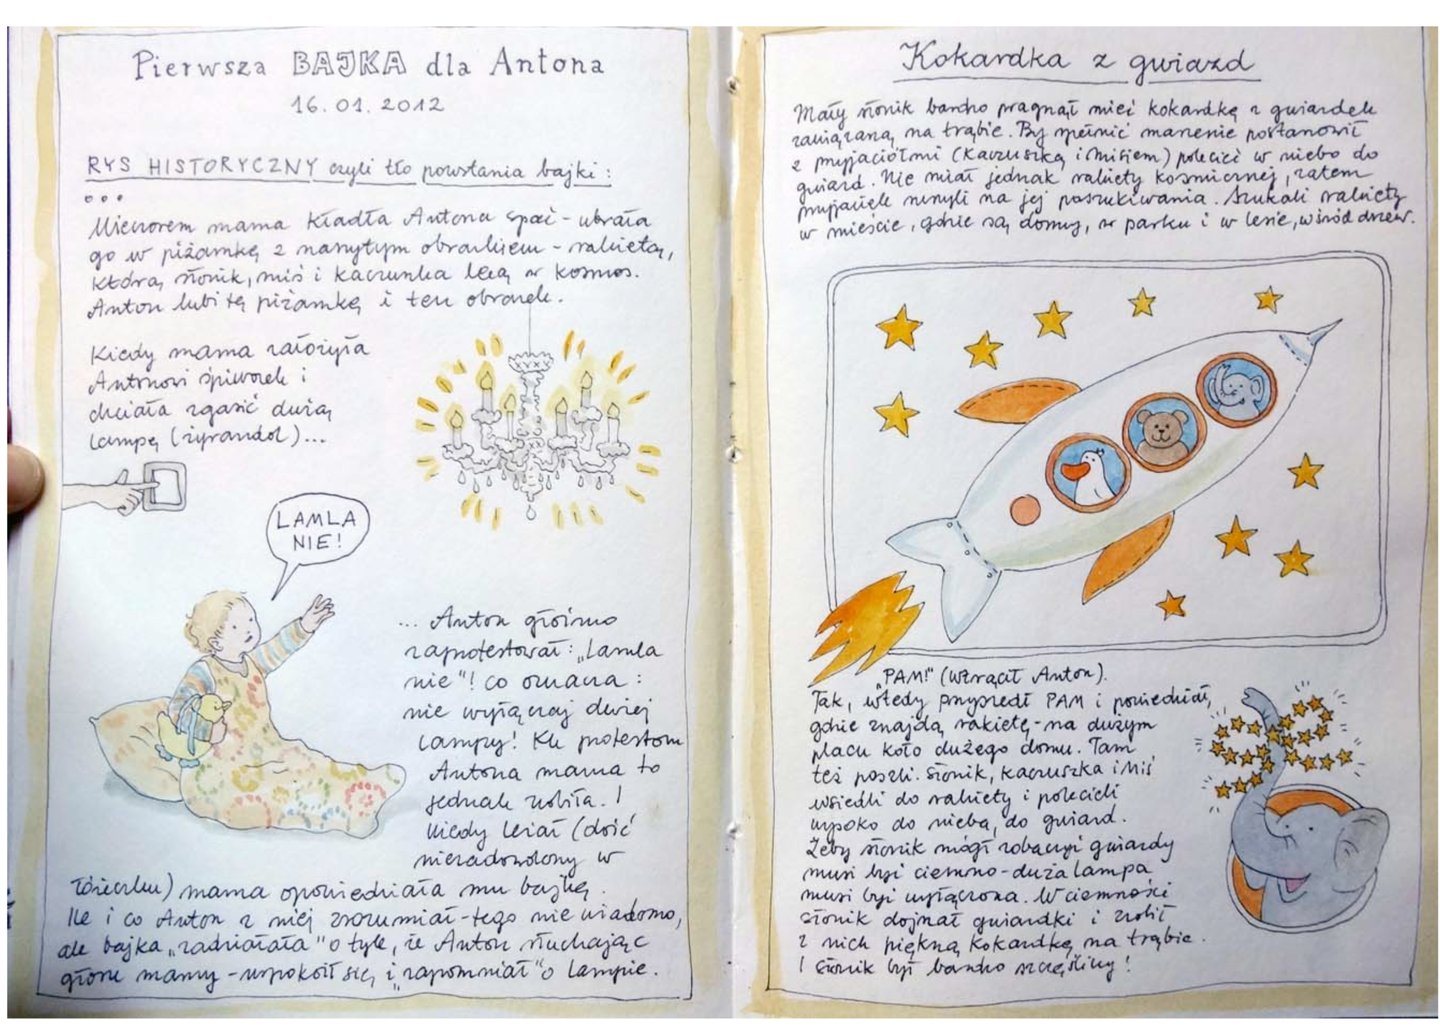 Pierwsza BAJKA dla Antona
16.01.2012
RYS HISTORYCZNY czyli tło powstania bajki:
...
Wieczorem mama kładła Antona spać - ubrała
go w piżamkę z naszytym obrazkiem - rakietą,
którą słonik, miś i kaczuszka lecą w kosmos.
Anton lubi tę piżamkę i ten obrazek.
Kiedy mama założyła
Antonowi śpiworek i
chciała zgasić dużą
lampę (żyrandol)...
LAMLA
NIE!
... Anton głośno
zaprotestował: „Lamla
nie"! co oznacza:
nie wyłączaj dużej
lampy! Ku protestom
Antona mama to
jednak zrobiła. I
kiedy leżał (dość
niezadowolony w
łóżeczku) mama opowiedziała mu bajkę.
Ile i co Anton z niej zrozumiał - tego nie wiadomo,
ale bajka „zadziałała" o tyle, że Anton słuchając
głosu mamy - uspokoił się, i „zapomniał" o lampie.
Kokardka z gwiazd
Mały słonik bardzo pragnął mieć kokardkę z gwiazdek
zawiązaną na trąbie. By spełnić marzenie postanowił
z przyjaciółmi (kaczuszką i misiem) polecieć w niebo do
gwiazd. Nie miał jednak rakiety kosmicznej, zatem
przyjaciele ruszyli na jej poszukiwania. Szukali rakiety
w mieście, gdzie są domy, w parku i w lesie, wśród drzew.
„PAM!" (wtrącał Anton).
Tak, wtedy przyszedł PAM i powiedział,
gdzie znajdą rakietę - na dużym
placu koło dużego domu. Tam
też poszli. Słonik, kaczuszka i miś
wsiedli do rakiety i polecieli
wysoko do nieba, do gwiazd.
Żeby słonik mógł zobaczyć gwiazdy
musi być ciemno - duża lampa
musi być wyłączona. W ciemności
słonik dojrzał gwiazdki i zrobił
z nich piękną kokardkę na trąbie.
I słonik był bardzo szczęśliwy!